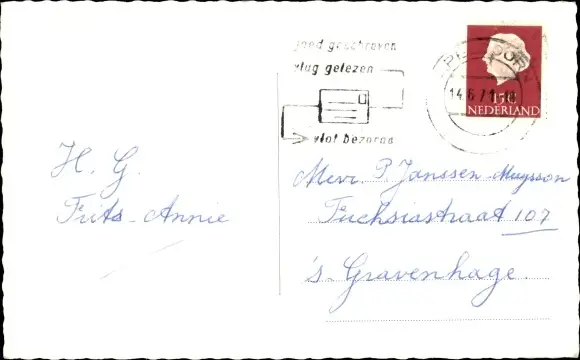 goed geschreven
vlug gelezen
vlot bezorgd
14.6.71
15c
NEDERLAND
H. G.
Frits-Annie
Mevr. P. Janssen-Muysson
Fuchsiastraat 107
's-Gravenhage.